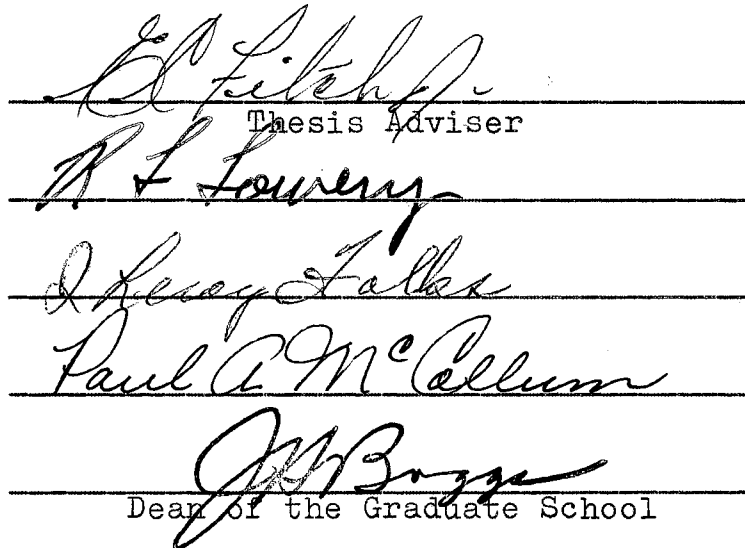 E C Fitch Jr.
Thesis Adviser
R L Lowery
J Leroy Folks
Paul A McCollum
Boggs
Dean of the Graduate School